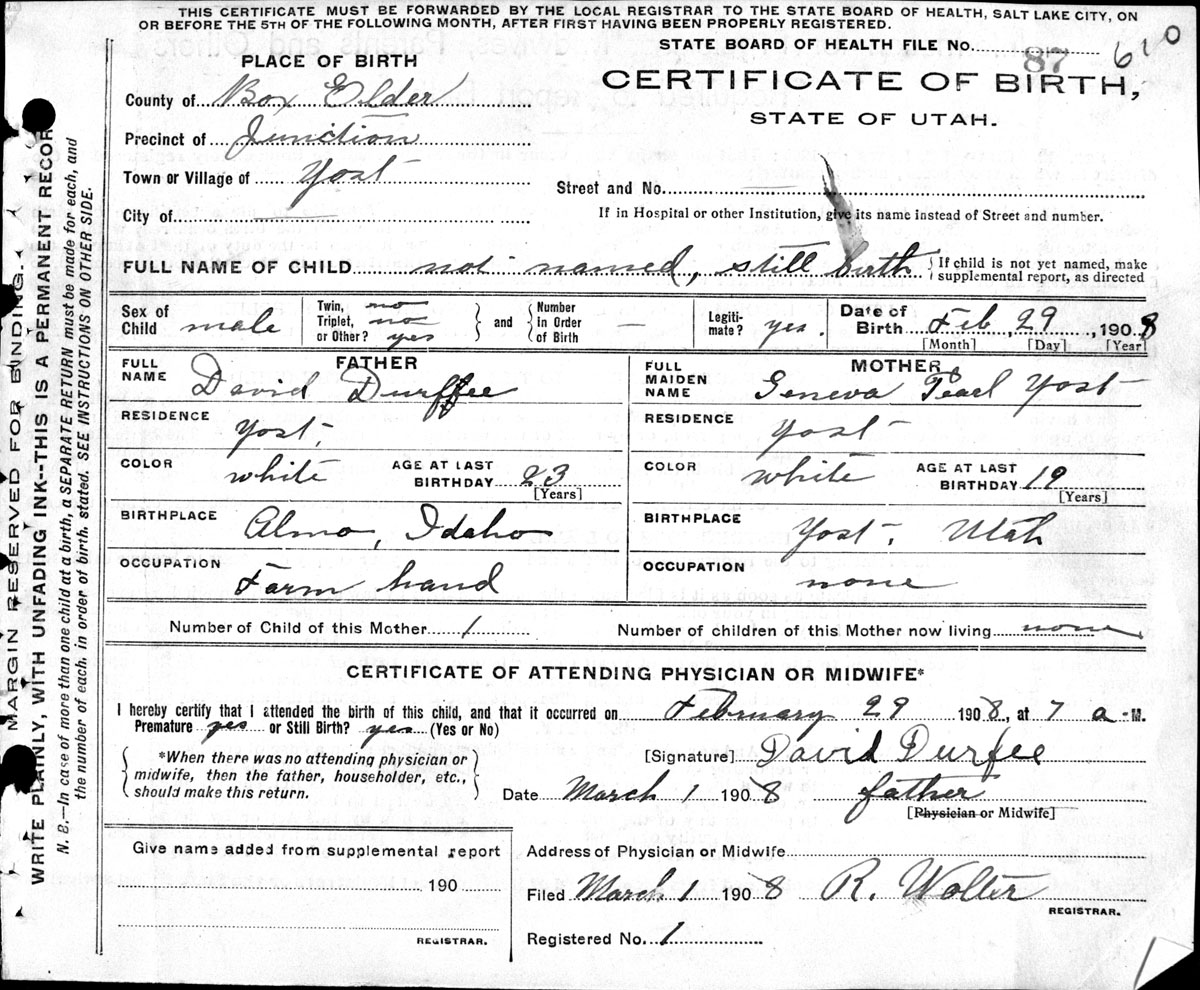 THIS CERTIFICATE MUST BE FORWARDED BY THE LOCAL REGISTRAR TO THE STATE BOARD OF HEALTH, SALT LAKE CITY, ON
OR BEFORE THE 5TH OF THE FOLLOWING MONTH, AFTER FIRST HAVING BEEN PROPERLY REGISTERED.
STATE BOARD OF HEALTH FILE No. 87 610
PLACE OF BIRTH
CERTIFICATE OF BIRTH,
STATE OF UTAH.
County of Box Elder
Precinct of Junction
Town or Village of Yost
Street and No. —
City of —
If in Hospital or other Institution, give its name instead of Street and number.
FULL NAME OF CHILD not named, still birth { If child is not yet named, make supplemental report, as directed
Sex of Child male
Twin, no
Triplet, no
or Other? yes
and
Number in Order of Birth —
Legitimate? yes.
Date of Birth Feb 29, 1908
[Month] [Day] [Year]
FATHER
FULL NAME David Durffee
RESIDENCE Yost,
COLOR white AGE AT LAST BIRTHDAY 23
[Years]
BIRTHPLACE Almo, Idaho
OCCUPATION Farm hand
MOTHER
FULL MAIDEN NAME Geneva Pearl Yost
RESIDENCE Yost
COLOR white AGE AT LAST BIRTHDAY 19
[Years]
BIRTHPLACE Yost, Utah
OCCUPATION none
Number of Child of this Mother 1 Number of children of this Mother now living none
CERTIFICATE OF ATTENDING PHYSICIAN OR MIDWIFE*
I hereby certify that I attended the birth of this child, and that it occurred on February 29 1908, at 7 a. M.
Premature yes or Still Birth? yes (Yes or No)
*When there was no attending physician or
midwife, then the father, householder, etc.,
should make this return.
[Signature] David Durfee
Date March 1 1908 father
[Physician or Midwife]
Give name added from supplemental report
190
REGISTRAR.
Address of Physician or Midwife
Filed March 1 1908 R. Wolter
REGISTRAR.
Registered No. 1
MARGIN RESERVED FOR BINDING.
WRITE PLAINLY, WITH UNFADING INK--THIS IS A PERMANENT RECOR
N. B.—In case of more than one child at a birth, a SEPARATE RETURN must be made for each, and
the number of each, in order of birth, stated. SEE INSTRUCTIONS ON OTHER SIDE.